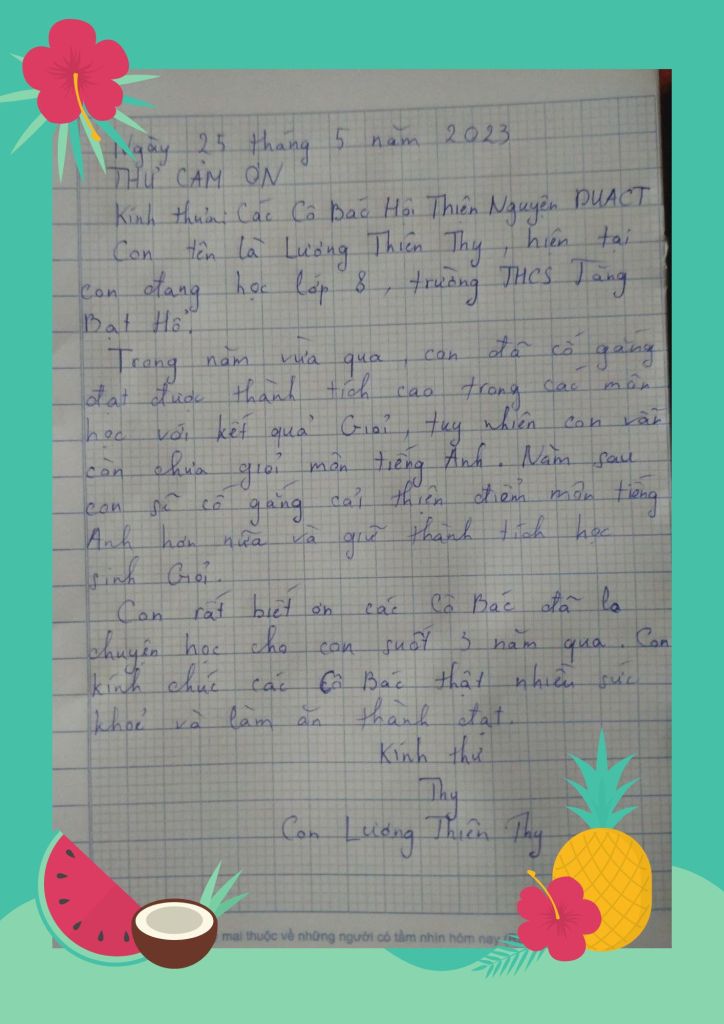 Ngày 25 tháng 5 năm 2023
THƯ CẢM ƠN
Kính thưa: Các Cô Bác Hội Thiện Nguyện DUACT
Con tên là Lương Thiên Thy, hiện tại
con đang học lớp 8, trường THCS Tăng
Bạt Hổ.
Trong năm vừa qua, con đã cố gắng
đạt được thành tích cao trong các môn
học với kết quả Giỏi, tuy nhiên con vẫn
còn chưa giỏi môn tiếng Anh. Năm sau
con sẽ cố gắng cải thiện điểm môn tiếng
Anh hơn nữa và giữ thành tích học
sinh Giỏi.
Con rất biết ơn các Cô Bác đã lo
chuyện học cho con suốt 3 năm qua. Con
kính chúc các Cô Bác thật nhiều sức
khoẻ và làm ăn thành đạt.
Kính thư
Thy
Con Lương Thiên Thy
mai thuộc về những người có tầm nhìn hôm nay